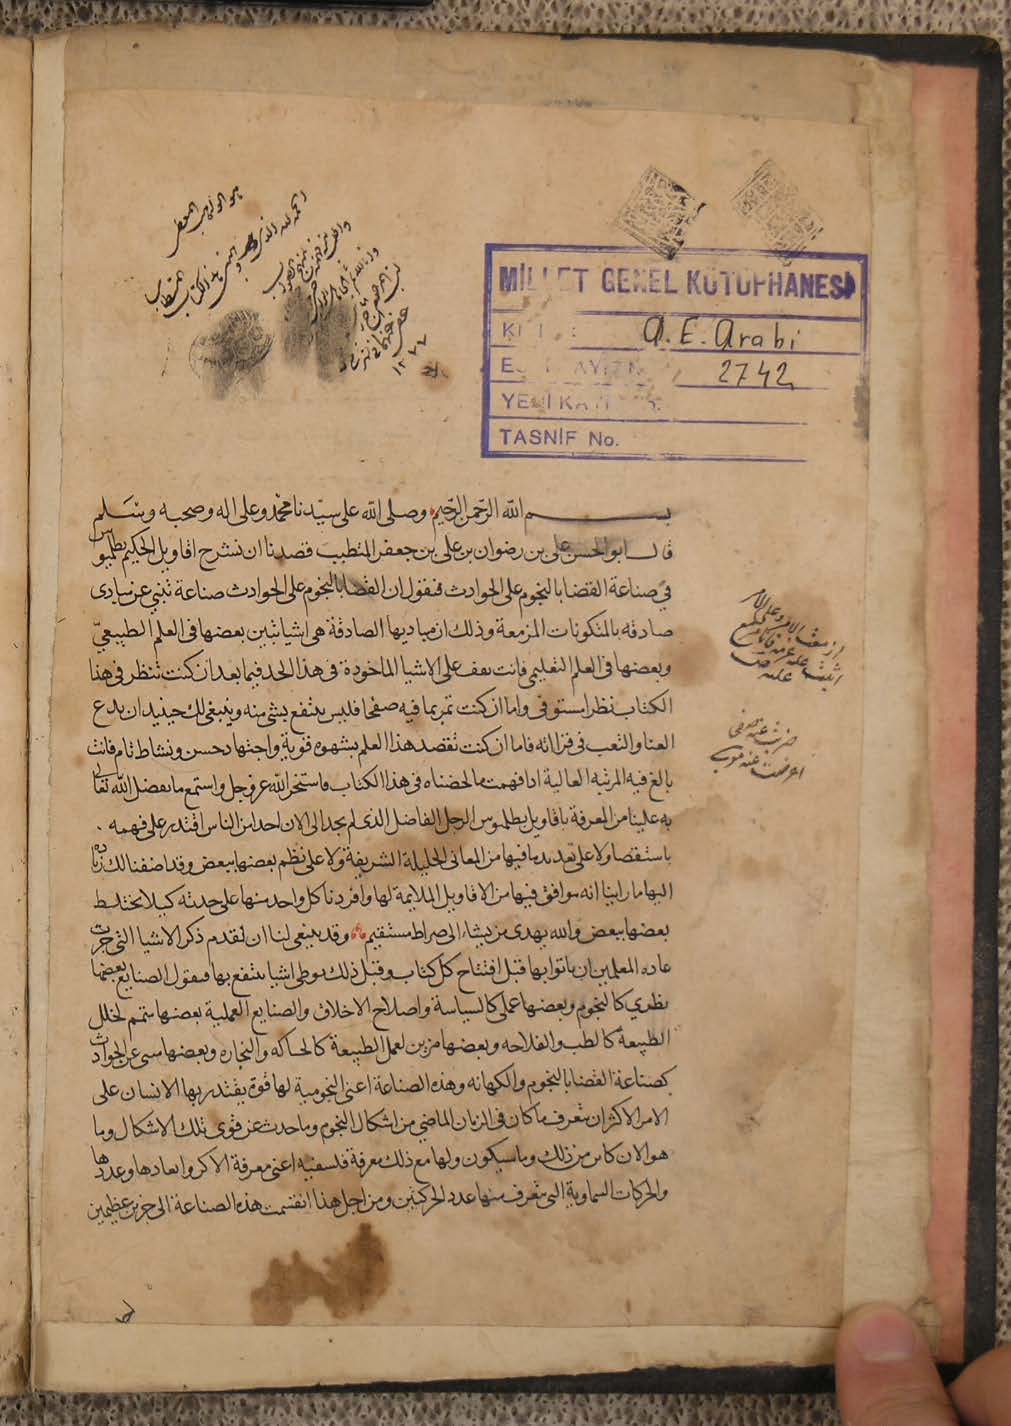 MİLLET GENEL KÜTÜPHANESİ
A. E. Arabi
2742
TASNİF No.
١٢٧٧
بسم الله الرحمن الرحيم وصلى الله على سيدنا محمد وعلى اله وصحبه وسلم
قال ابو الحسن على بن رضوان بن على بن جعفر المتطبب قصدنا ان نشرح اقاويل الحكيم بطلميوس
في صناعة القضايا بالنجوم على الحوادث فنقول ان القضايا بالنجوم على الحوادث صناعة تنبي عن مبادى
صادقه بالمتكونات المزمعة وذلك ان مباديها الصادقة هي اشيا تبين بعضها فى العلم الطبيعيّ
وبعضها فى العلم التعليمى فانت تقف على الاشيا الماخوذة فى هذا الحد فيما بعد ان كنت تنظر فى هذا
الكتاب نظرا مستوفى واما ان كنت تمر بما فيه صفحا فليس ينتفع بشى منه وينبغى لك حينيذ ان تدع
العنا والتعب فى قراءته فاما ان كنت تقصد هذا العلم بشهوه قوية واجتهاد حسن ونشاط تام فانت
بالغ فيه المرتبه العالية اذا فهمت ما لخصناه فى هذا الكتاب فاستخر الله عز وجل واستمع ما تفضل الله تعالى
به علينا من المعرفة باقاويل بطلميوس الرجل الفاضل الذى لم يجد الى الان احدا من الناس اقتدر على فهمه
باستقصا ولا على تعديد ما فيها من المعانى الجليلة الشريفة ولا على نظم بعضها ببعض وقد اضفنا لك زياده
اليها ما راينا انه موافق فيها من الاقاويل الملايمة لها وافردنا كل واحد منها على حدته كيلا يختلط
بعضها ببعض والله يهدى من يشاء الى صراط مستقيم وقد ينبغى لنا ان نقدم ذكر الاشيا التى جرت
عاده المعلمين ان ياتوا بها قبل افتتاح كل كتاب وقبل ذلك نوطى اشيا ينتفع بها فنقول الصنايع بعضها
نظري كالنجوم وبعضها عملى كالسياسة واصلاح الاخلاق والصنايع العملية بعضها متمم لخلل
الطبيعة كالطب والفلاحه وبعضها مزين لعمل الطبيعة كالحياكه والنجاره وبعضها ينبى عن الحوادث
كصناعة القضايا بالنجوم والكهانه وهذه الصناعة اعنى النجومية لها قوة يقتدر بها الانسان على
الامر الاكثر ان يتعرف ما كان فى الزمان الماضي من اشكال النجوم وما حدث عن قوى تلك الاشكال وما
هو الان كاين من ذلك وما سيكون ولها مع ذلك معرفة فلسفيه اعنى معرفة الاكر وابعادها وعددها
والحركات السماوية التى يتعرف منها عدد الحركتين ومن اجل هذا انقسمت هذه الصناعة الى جزين عظيمين